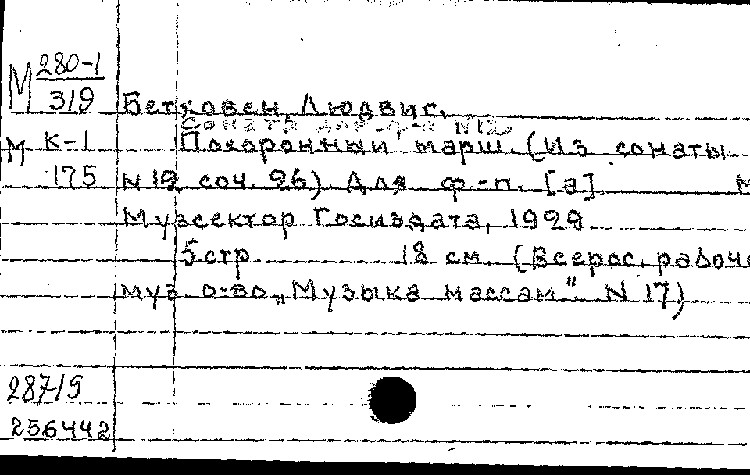 М 280-1
319
Бетховен, Людвиг.
Соната для ф-п N12
М К-1
Похоронный марш. (Из сонаты
175
N 12 соч. 26). Для ф-п. [а]
М
Музсектор Госиздата, 1929
5 стр. 18 см. (Всерос. рабоче
муз. о-во „Музыка массам" N 17)
287/9
256442